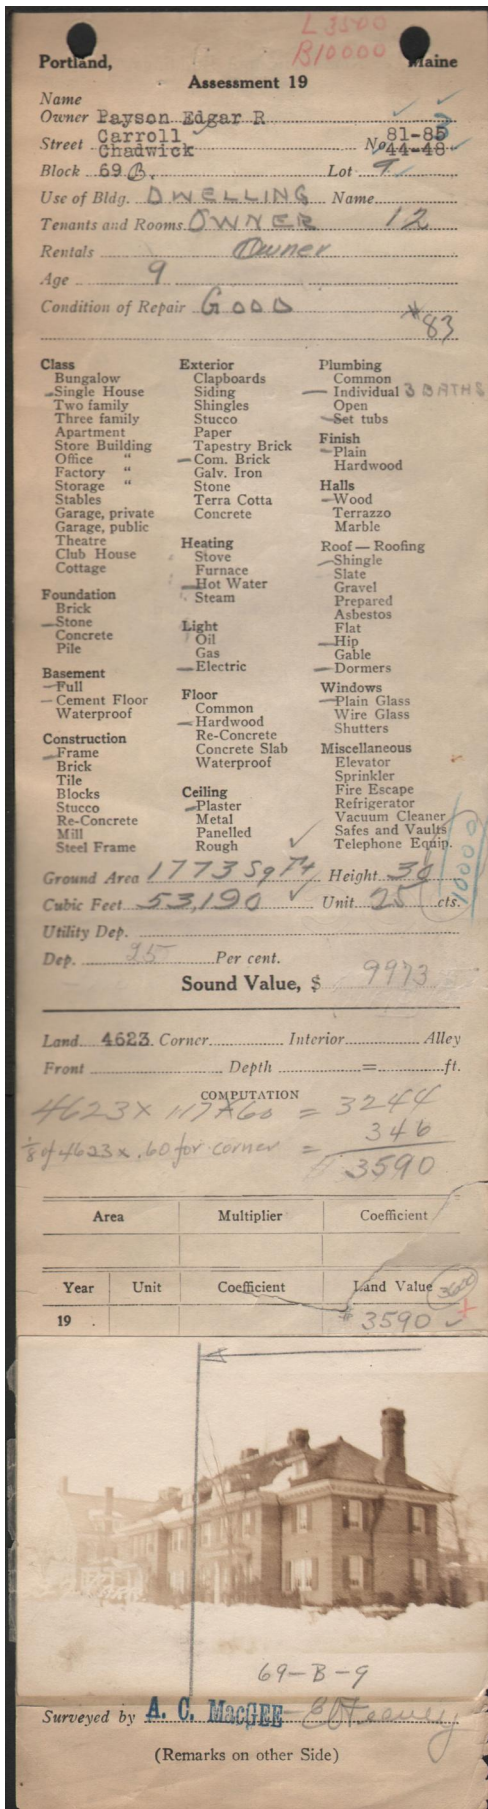 L 3500
B10000
Portland, Maine
Assessment 19
Name
Owner Payson Edgar R
Street Carroll 81-85
Chadwick No. 44-48
Block 69 B. Lot 9
Use of Bldg. DWELLING Name
Tenants and Rooms OWNER 12
Rentals Owner
Age 9
Condition of Repair GOOD
*83
Class
Bungalow
Single House
Two family
Three family
Apartment
Store Building
Office "
Factory "
Storage "
Stables
Garage, private
Garage, public
Theatre
Club House
Cottage
Foundation
Brick
Stone
Concrete
Pile
Basement
Full
Cement Floor
Waterproof
Construction
Frame
Brick
Tile
Blocks
Stucco
Re-Concrete
Mill
Steel Frame
Exterior
Clapboards
Siding
Shingles
Stucco
Paper
Tapestry Brick
Com. Brick
Galv. Iron
Stone
Terra Cotta
Concrete
Heating
Stove
Furnace
Hot Water
Steam
Light
Oil
Gas
Electric
Floor
Common
Hardwood
Re-Concrete
Concrete Slab
Waterproof
Ceiling
Plaster
Metal
Panelled
Rough
Plumbing
Common
Individual 3 BATHS
Open
Set tubs
Finish
Plain
Hardwood
Halls
Wood
Terrazzo
Marble
Roof — Roofing
Shingle
Slate
Gravel
Prepared
Asbestos
Flat
Hip
Gable
Dormers
Windows
Plain Glass
Wire Glass
Shutters
Miscellaneous
Elevator
Sprinkler
Fire Escape
Refrigerator
Vacuum Cleaner
Safes and Vaults
Telephone Equip.
10000
Ground Area 1773 Sq Ft Height 30
Cubic Feet 53,190 Unit 25 cts.
Utility Dep.
Dep. 25 Per cent.
Sound Value, $ 9973
Land 4623 Corner Interior Alley
Front Depth = ft.
COMPUTATION
4623 x 117 x 60 = 3244
1/8 of 4623 x .60 for corner = 346
3590
Area Multiplier Coefficient
Year Unit Coefficient Land Value 3600
19 $ 3590
69-B-9
Surveyed by A. C. MacGEE
(Remarks on other Side)